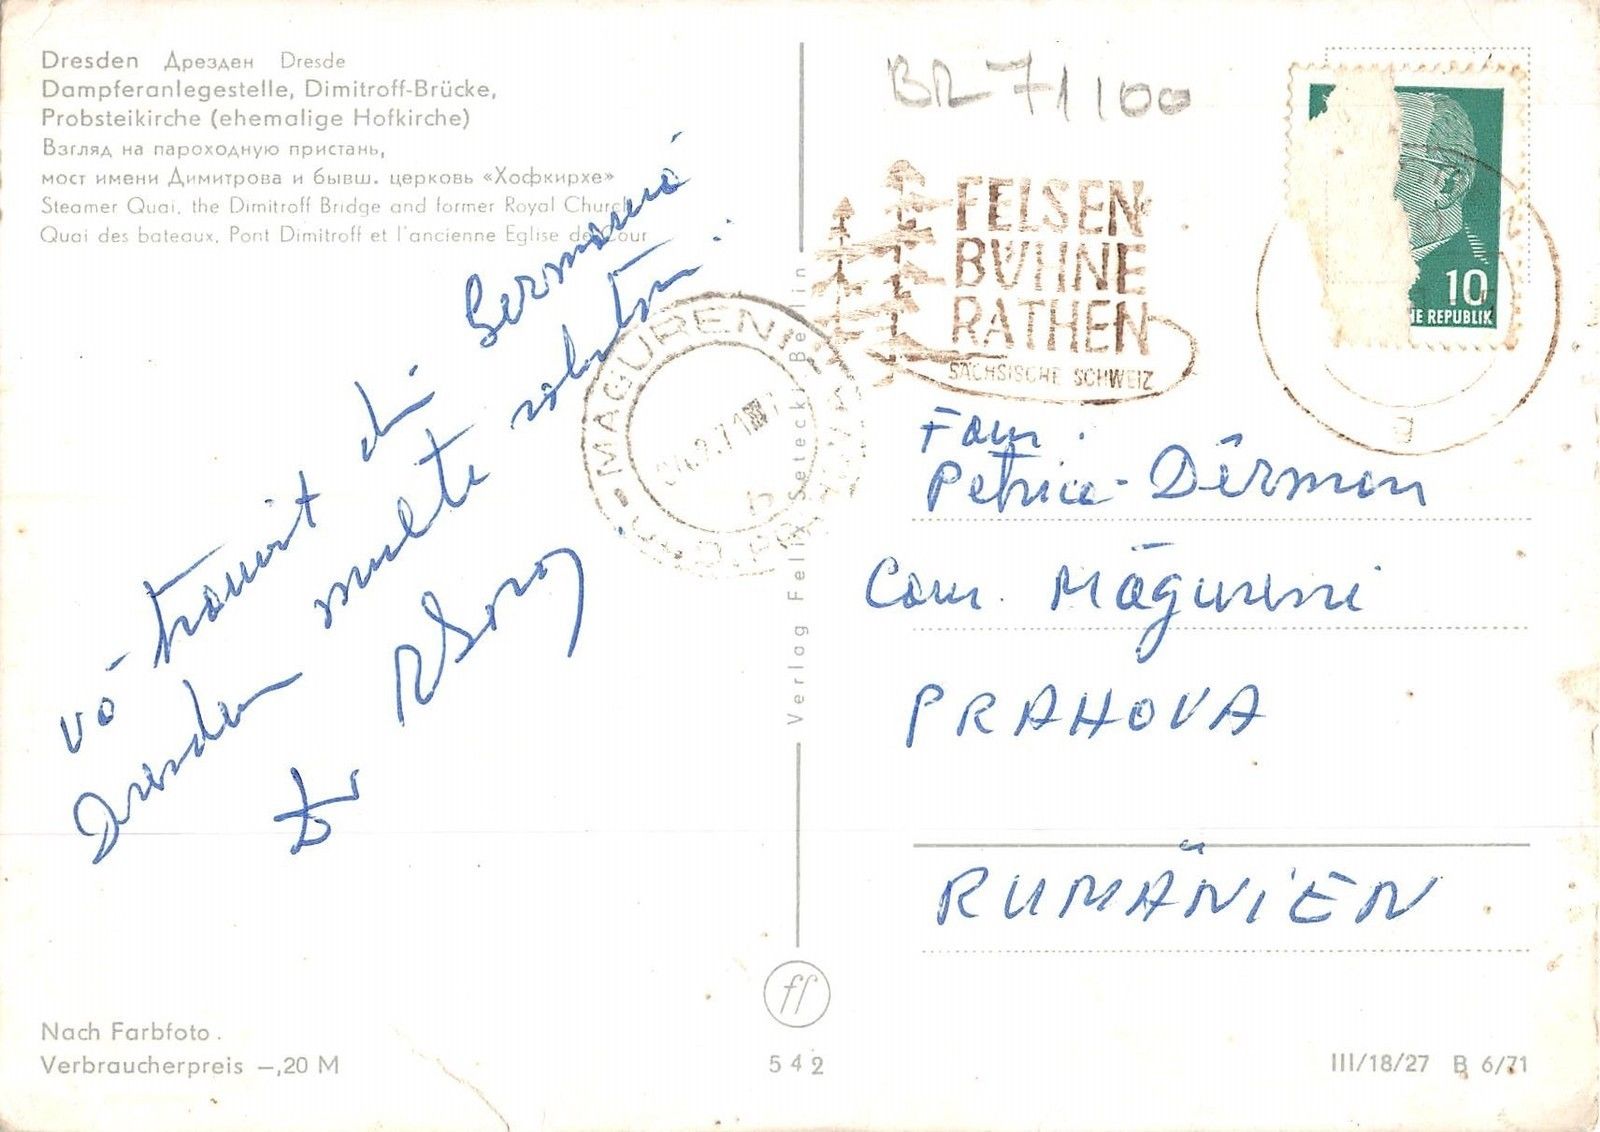 Dresden Дрезден Dresde
Dampferanlegestelle, Dimitroff-Brücke,
Probsteikirche (ehemalige Hofkirche)
Взгляд на пароходную пристань,
мост имени Димитрова и бывш. церковь «Хофкирхе»
Steamer Quai, the Dimitroff Bridge and former Royal Church
Quai des bateaux, Pont Dimitroff et l'ancienne Eglise de Cour
vă trimit din Germania
Dresden multe salutări.
Dr
Nach Farbfoto
Verbraucherpreis –,20 M
MAGURENI
Verlag Felix Setecki, Berlin
ff
542
BR 71 100
FELSEN
BÜHNE
RATHEN
SÄCHSISCHE SCHWEIZ
10
HE REPUBLIK
Fam.
Petrice Dărmon
Com. Măgureni
PRAHOVA
RUMÄNIEN
III/18/27 B 6/71